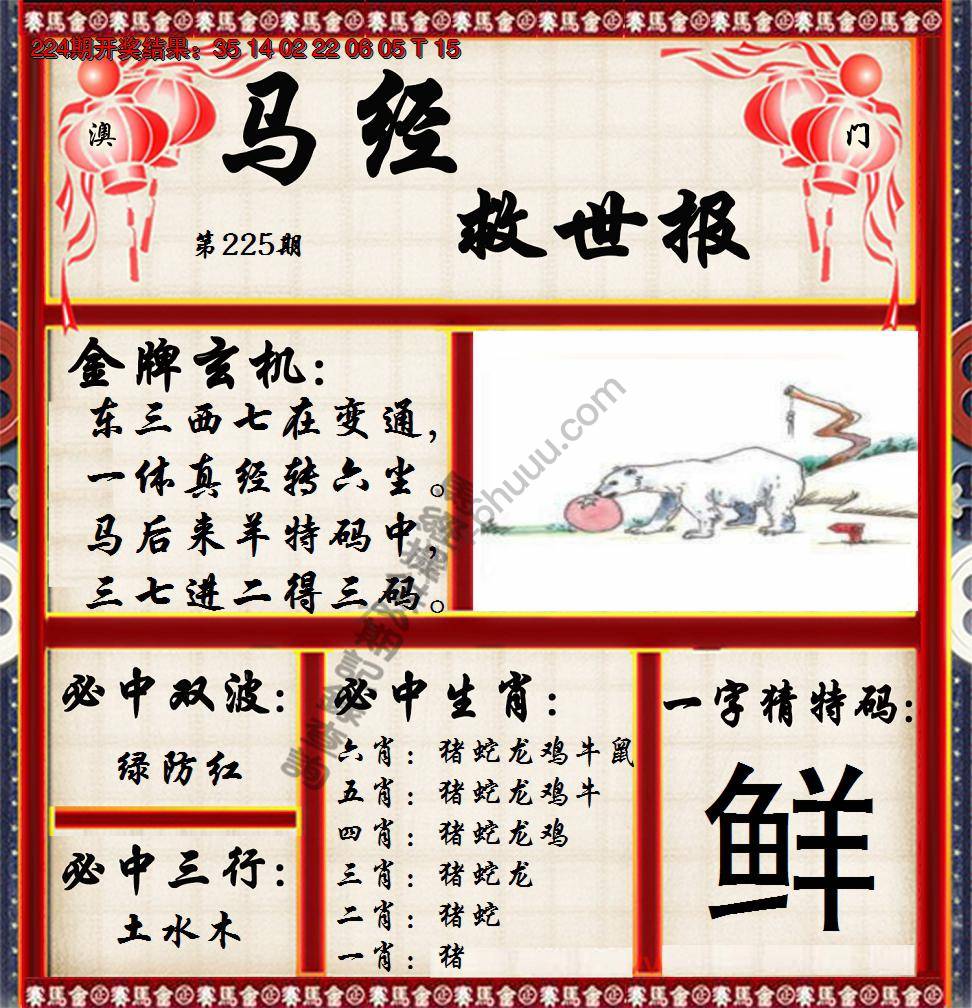 赛馬會 赛馬會 赛馬會 赛馬會 赛馬會 赛馬會 赛馬會 赛馬會
224期开奖结果：35 14 02 22 06 05 T 15
澳
门
马经
救世报
第225期
金牌玄机：
东三西七在变通，
一体真经转六尘。
马后来羊特码中，
三七进二得三码。
必中双波：
绿防红
必中三行：
土水木
必中生肖：
六肖：猪蛇龙鸡牛鼠
五肖：猪蛇龙鸡牛
四肖：猪蛇龙鸡
三肖：猪蛇龙
二肖：猪蛇
一肖：猪
一字猜特码：
鲜